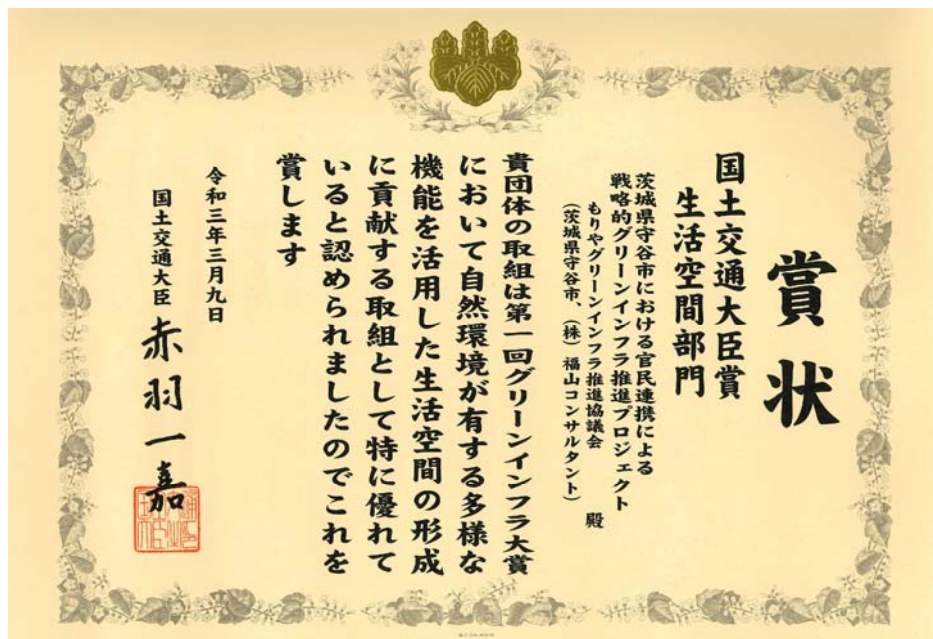 賞状
国土交通大臣賞
生活空間部門
茨城県守谷市における官民連携による
戦略的グリーンインフラ推進プロジェクト
もりやグリーンインフラ推進協議会
(茨城県守谷市、(株)福山コンサルタント) 殿
貴団体の取組は第一回グリーンインフラ大賞
において自然環境が有する多様な
機能を活用した生活空間の形成
に貢献する取組として特に優れて
いると認められましたのでこれを
賞します
令和三年三月九日
国土交通大臣 赤羽一嘉